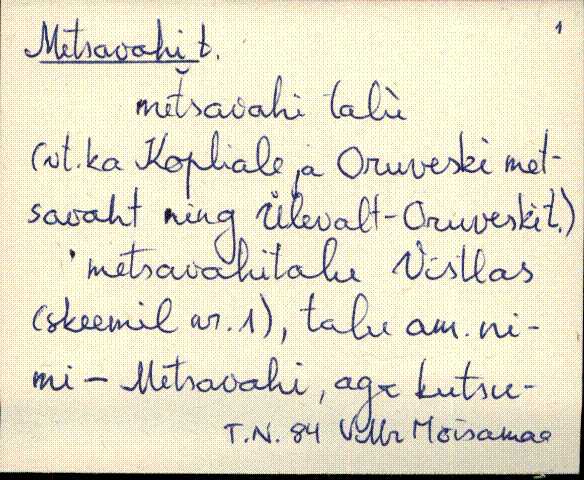 1
Metsavahi t.
metsavahi talù
(vt. ka Kopliale ja Oruveski met-
savaht ning Ülevalt-Oruveski t.)
metsavahitalu Vistlas
(skeemil nr. 1), talu am. ni-
mi – Metsavahi, aga kutsu-
T.N. 84 VMr Mõisamaa